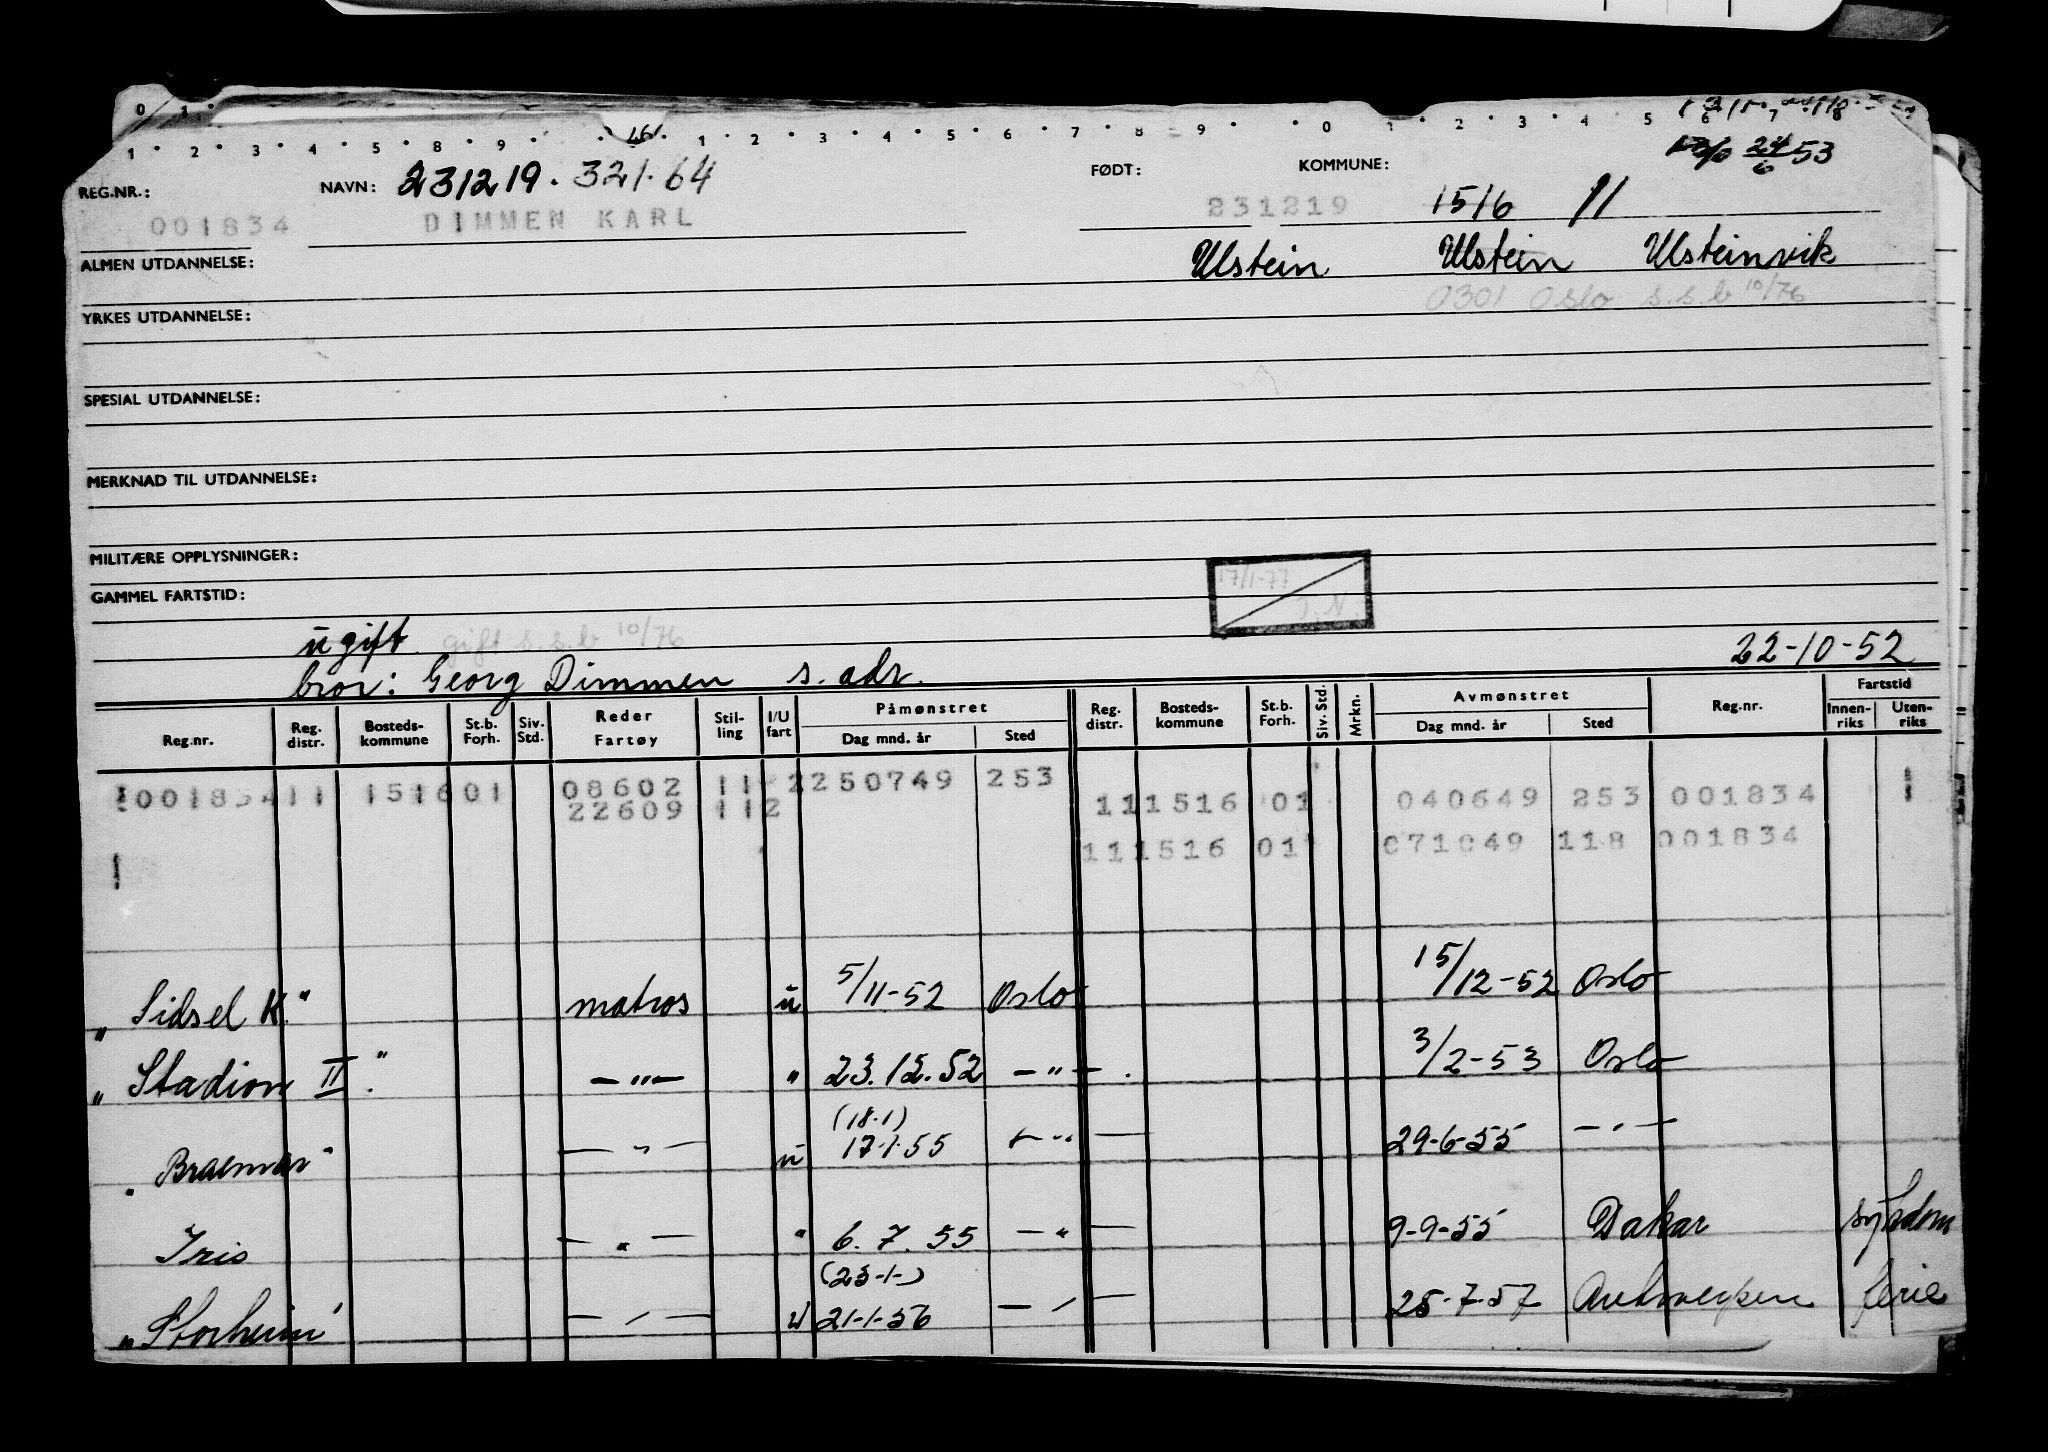 0 1
1 2 3 4 5 6 7 8 9 0 1 2 3 4 5
1 2 3 4 5 8 9
24/6 53
REG.NR.: NAVN: 231219. 321.64 FØDT: KOMMUNE:
001834 DIMMEN KARL 231219 1516 11
ALMEN UTDANNELSE: Ulstein Ulstein Ulsteinvik
0301 Oslo s.s.b 10/76
YRKES UTDANNELSE:
SPESIAL UTDANNELSE:
MERKNAD TIL UTDANNELSE:
MILITÆRE OPPLYSNINGER:
17/1-77
J.N.
GAMMEL FARTSTID:
ugift. gift s.s.b 10/76 22-10-52
bror: Georg Dimmen s. adr.
Reg.nr. Reg. distr. Bosteds-kommune St.b. Forh. Siv. Std. Reder Fartøy Stil-ling I/U fart Påmønstret Dag mnd. år Sted Reg. distr. Bosteds-kommune St.b. Forh. Siv. Std. Mrkn. Avmønstret Dag mnd. år Sted Reg.nr. Fartstid Innen-riks Uten-riks
001834 11 1516 01 08602 11 2 250749 253
22609 11 2 11 1516 01 040649 253 001834 1
11 1516 01 071049 118 001834
1
„Sidsel K." matros u 5/11-52 Oslo 15/12-52 Oslo
„Stadion II". —"— " 23.12.52 —"—. 3/2-53 Oslo
(18.1)
„Braemar" —"— u 17.1.55 —"— 29-6-55 —"—
Iris —"— " 6.7.55 —"— 9-9-55 Dakar sykdom
(23-1-)
„Storheim" —"— u 21-1-56 —"— 25-7-57 Antwerpen ferie